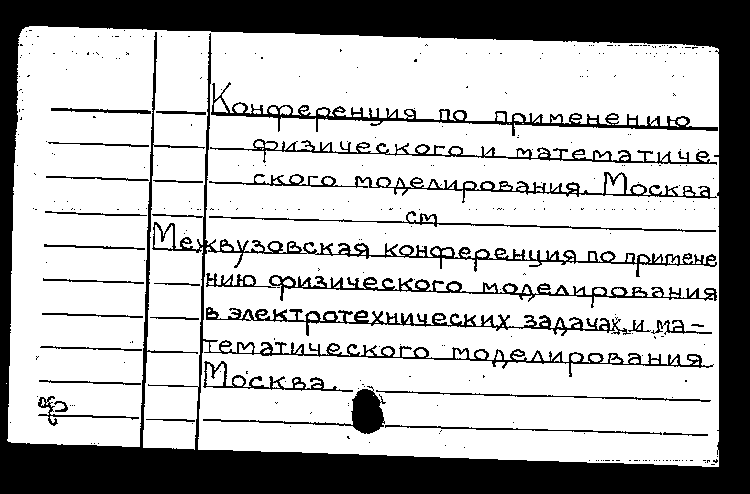 Конференция по применению
физического и математиче-
ского моделирования. Москва.
см
Межвузовская конференция по примене
нию физического моделирования
в электротехнических задачах, и ма-
тематического моделирования
Москва.